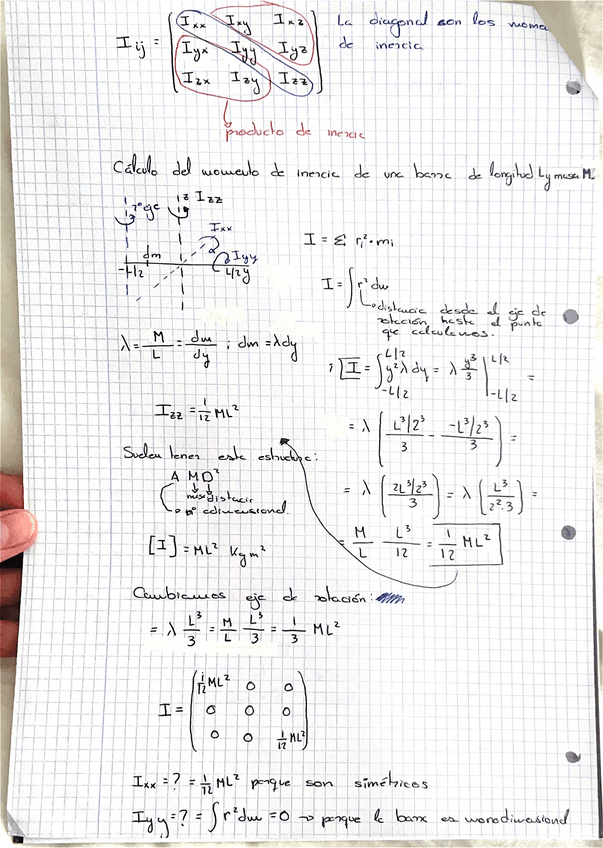 I ij = ( Ixx Ixy Ixz La diagonal son los mome
Iyx Iyy Iyz de inercia
Izx Izy Izz )
producto de inercia
Cálculo del momento de inercia de una barra de longitud L y masa M.
2º eje z Izz
Ixx
dm Iyy
-L/2 L/2 y
I = Σ ri² · mi
I = ∫ r² dm
distancia desde el eje de
rotación hasta el punto
que calculemos.
λ = M/L = dm/dy ; dm = λdy
; I = ∫_{-L/2}^{L/2} y² λ dy = λ y³/3 |_{-L/2}^{L/2} =
Izz = 1/12 ML²
= λ ( (L³/2³)/3 - (-L³/2³)/3 ) =
Suelen tener esta estructura:
A M D²
masa distancia
nº adimensional.
= λ ( (2L³/2³)/3 ) = λ ( L³/(2²·3) ) =
= M/L L³/12 = 1/12 ML²
[I] = ML² Kg m²
Cambiamos eje de rotación:
= λ L³/3 = M/L L³/3 = 1/3 ML²
I = ( 1/12 ML² 0 0
0 0 0
0 0 1/12 ML² )
Ixx = ? = 1/12 ML² porque son simétricos
Iyy = ? = ∫ r² dm = 0 → porque la barra es monodimensional